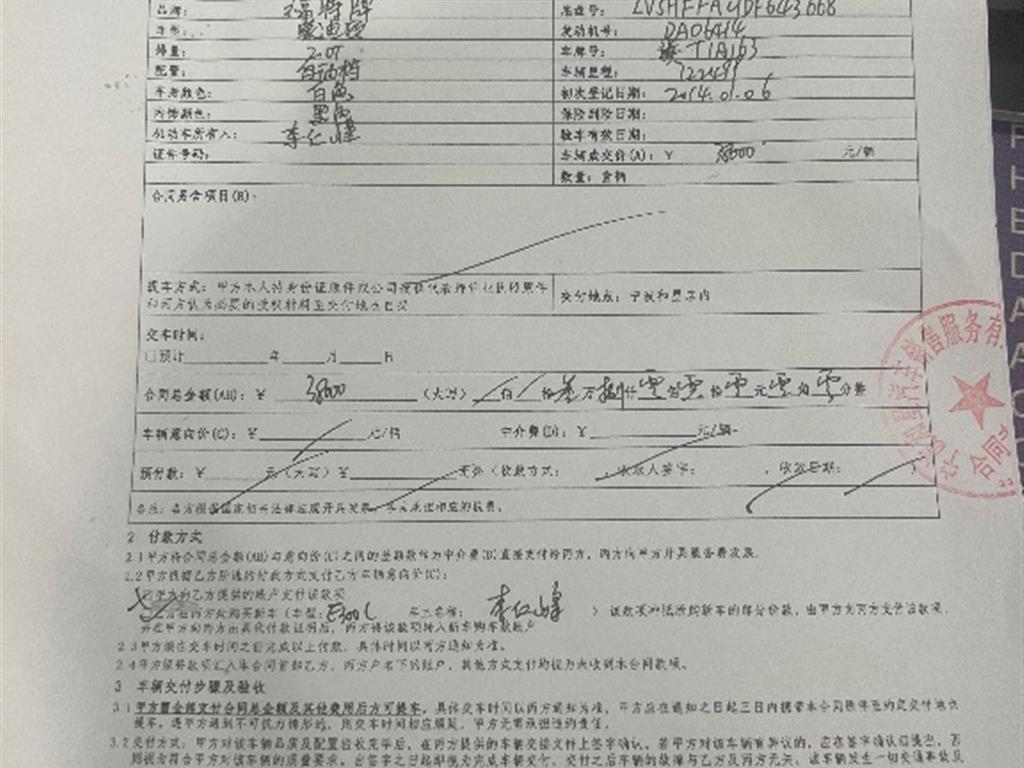 品牌： 福特牌 底盘号： LVSHFFAYDF643668
车型： 蒙迪欧 发动机号： DA06414
排量： 2.0T 车牌号： T1A163
配置： 自动档 车辆里程： 122499
车身颜色： 白色 初次登记日期： 2014.01.06
内饰颜色： 黑色 保险到期日期：
机动车所有人： 李仁峰 验车有效日期：
证件号码： 车辆成交价(A)：￥ 38000 元/辆
数量：壹辆
合同易含项目(B)：
提车方式：甲方本人持身份证原件或公司授权代表持
和丙方认为必要的授权材料至交付地点自提 交付地点：宁波和昱店内
交车时间：
□预计 年 月 日
合同总金额(AB)：￥ 38000 （大写） 佰 拾 叁 万 捌 仟 零 佰 零 拾 零 元 零 角 零 分整
车辆意向价(C)：￥ 元/辆 中介费(D)：￥ 元/辆
预付款：￥ 元（大写）￥ 元整（收款方式： 收款人签字： ，收款日期：
备注：各方根据国家相关法律法规开具发票，并承担相应的税费。
2 付款方式
2.1甲方将合同总金额(AB)与意向价(C)之间的差额款作为中介费(D)直接支付给丙方，丙方向甲方开具服务费发票。
2.2甲方根据乙方所选的付款方式支付乙方车辆意向价(C)：
甲方向乙方提供的账户支付该款项
乙方在丙方处购买新车（车型：E300L 车主名称： 李仁峰 ）该款项冲抵所购新车的部分价款，由甲方为丙方支付该款项，
并在甲方向丙方出具代付款证明后，丙方将该款项转入新车购车款账户
2.3甲方须在交车时间之前完成以上付款，具体时间以丙方通知为准。
2.4甲方须将款项汇入本合同首部乙方、丙方户名下的账户，其他方式支付均视为未收到本合同款项。
3 车辆交付步骤及验收
3.1甲方需全部支付合同总金额及其他费用后方可提车。具体交车时间以丙方通知为准，甲方应在通知之日起三日内携带本合同原件至约定交付地点
提车。遇甲方遇到不可抗力情形的，则交车时间相应顺延，甲方无需承担违约责任。
3.2交付方式：甲方对该车辆品质及配置验收完毕后，在丙方提供的车辆交接文件上签字确认。若甲方对该车辆有异议的，应在签字确认前提出，否
则视为符合甲方对该车辆的质量要求。自签字之日起即视为完成车辆交付。交付之后车辆的故障与乙方及丙方无关，该车辆发生一切交通事故及